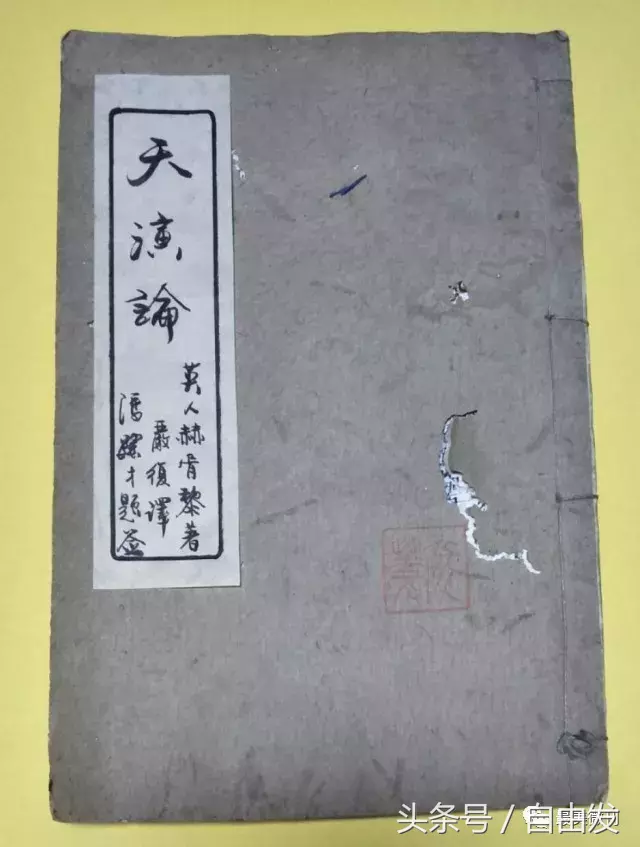 天演論
英人赫胥黎著
嚴復譯
馮驥才題簽
头条号／自由发